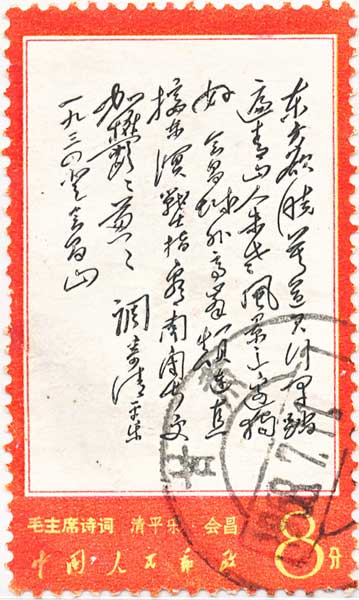 东方欲晓莫道君行早踏
遍青山人未老风景这边独
好 会昌城外高峰颠连直
接东溟战士指看南粤更
加欝〻葱〻 调寄清平乐
一九三四登会昌山
毛主席诗词 清平乐·会昌
中国人民邮政
8分